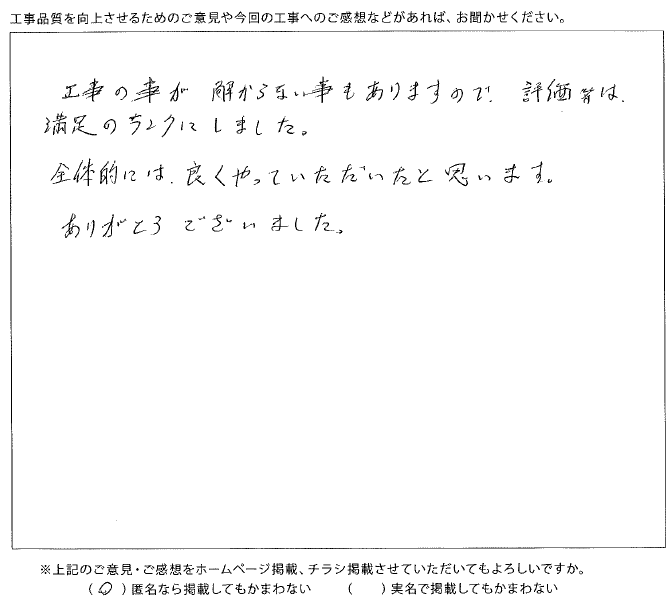 工事品質を向上させるためのご意見や今回の工事へのご感想などがあれば、お聞かせください。
工事の事が 解からない事もありますので、評価等は、
満足のランクにしました。
全体的には、良くやっていただいたと思います。
ありがとうございました。
※上記のご意見・ご感想をホームページ掲載、チラシ掲載させていただいてもよろしいですか。
(○)匿名なら掲載してもかまわない ( )実名で掲載してもかまわない